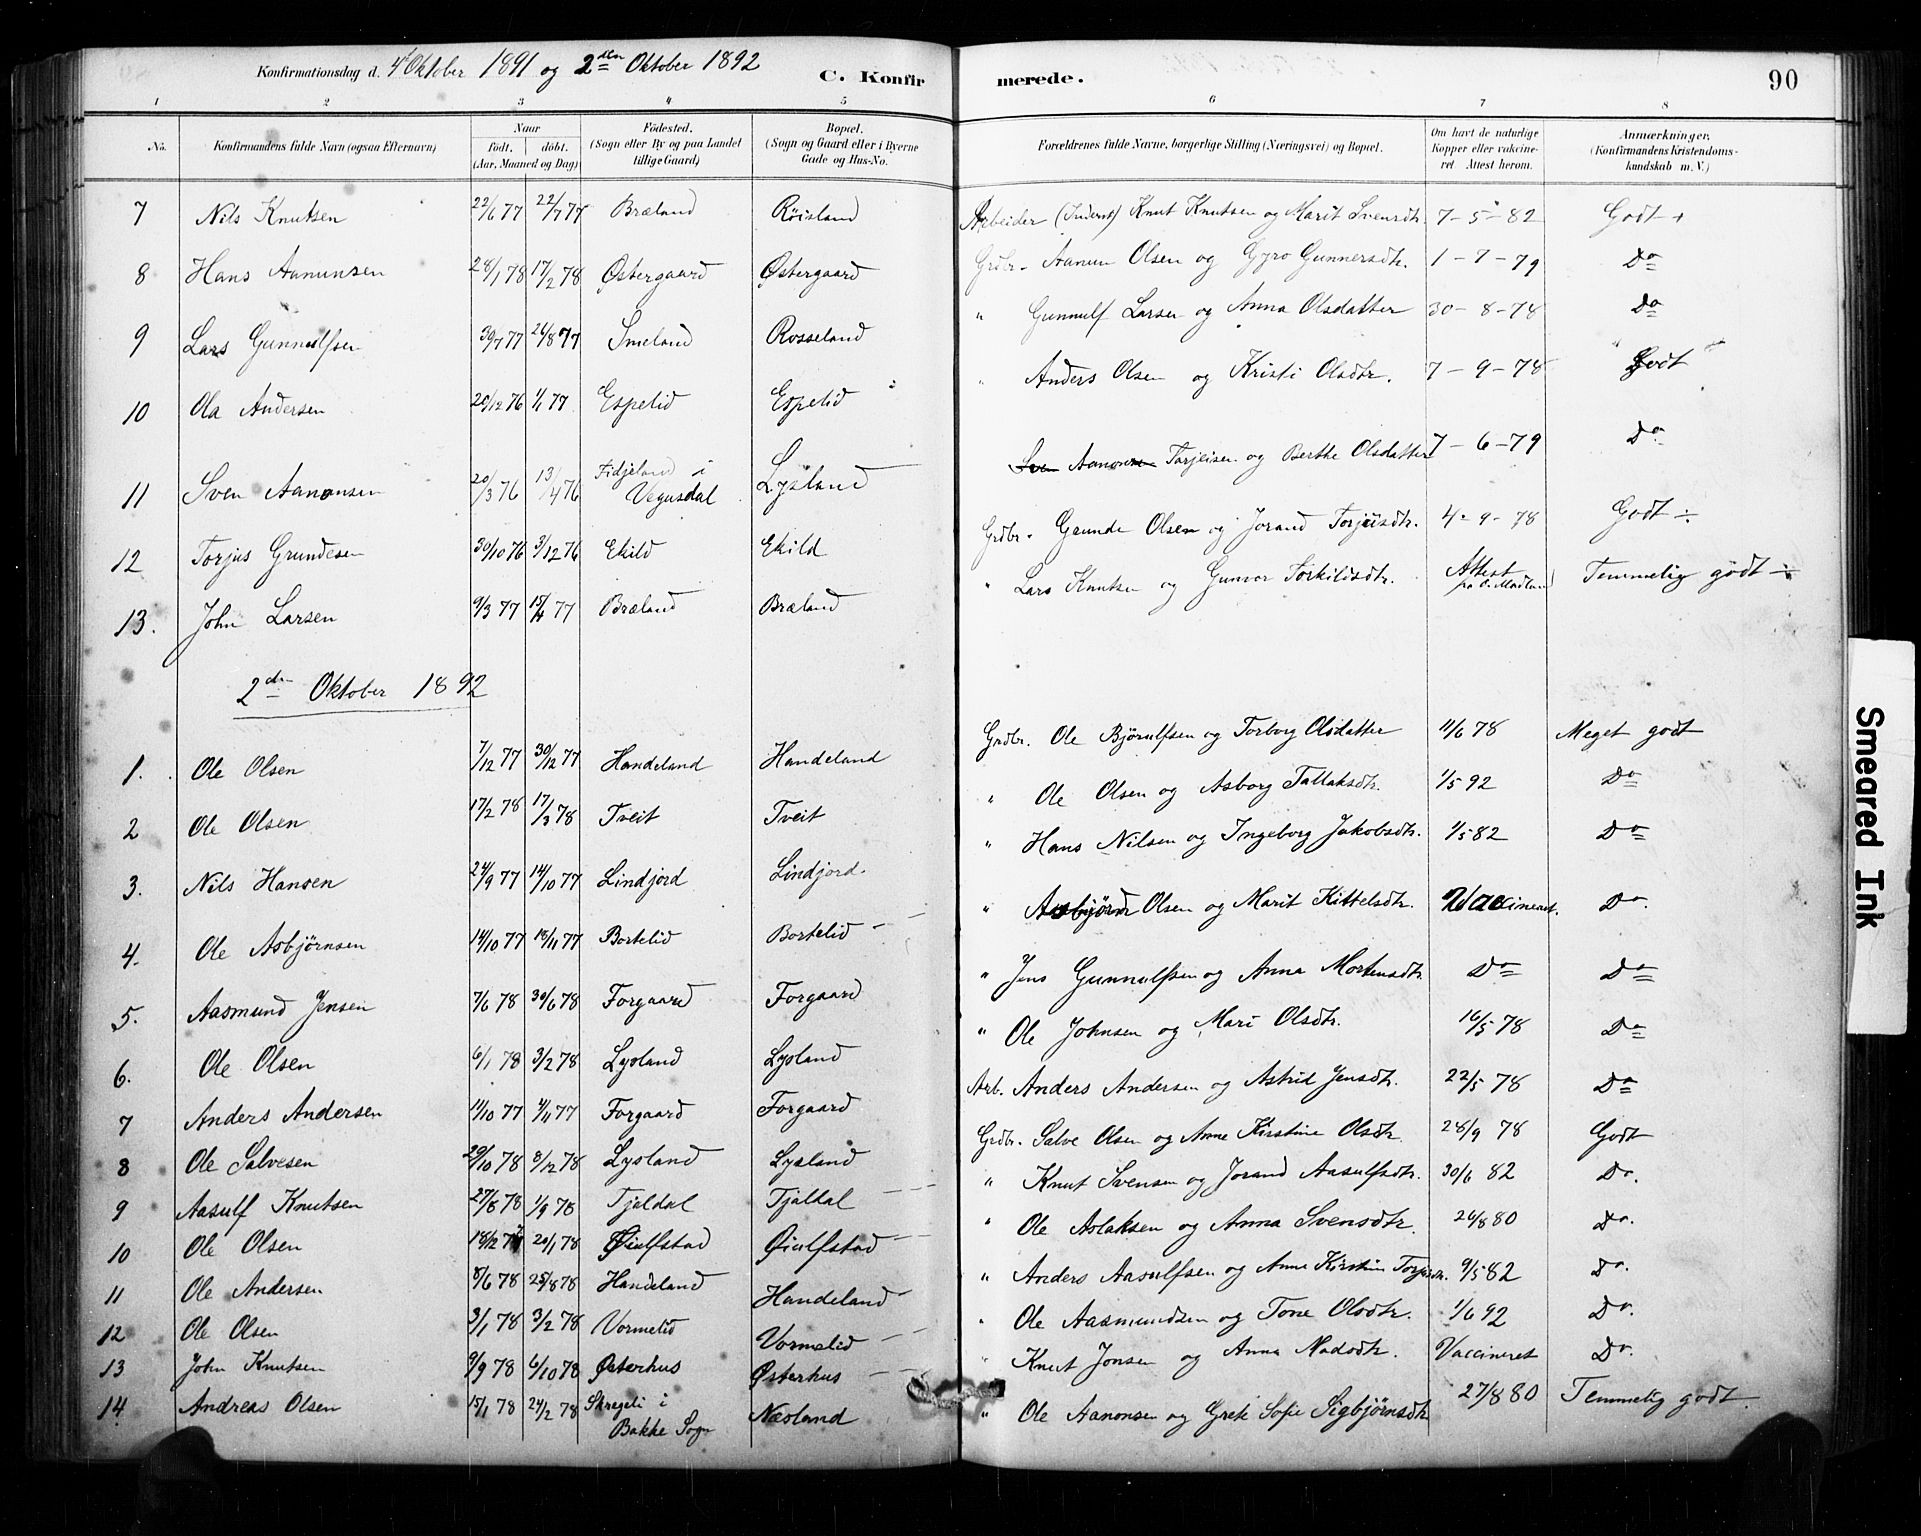 Konfirmationsdag d. 4' Oktober 1891 og 2den Oktober 1892 C. Konfirmerede. 90
1 2 3 4 5 6 7 8
No. Konfirmandens fulde Navn (ogsaa Efternavn) Naar født. døbt. (Aar, Maaned og Dag) Fødested. (Sogn eller By og paa Landet tillige Gaard) Bopæl. (Sogn og Gaard eller i Byerne Gade og Hus-No. Forældrenes fulde Navne, borgerlige Stilling (Næringsvei) og Bopæl. Om havt de naturlige Kopper eller vaccineret Attest herom. Anmærkninger. (Konfirmandens Kristendomskundskab m. V.)
7 Nils Knutsen 22/6 77 22/7 77 Bræland Røisland Arbeider (Inderst) Knut Knutsen og Marit Svensdtr. 7-5-82 Godt +
8 Hans Aanunsen 28/1 78 17/2 78 Østergaard Østergaard Grdbr. Aanun Olsen og Gyro Gunnersdtr. 1-7-79 Do
9 Lars Gunnulfsen 30/7 77 26/8 77 Smeland Rosseland " Gunnulf Larsen og Anna Olsdatter 30-8-78 Do
10 Ola Andersen 20/12 76 1/1 77 Espelid Espelid " Anders Olsen og Kristi Olsdtr. 7-9-78 Godt
11 Sven Aanonsen 20/3 76 13/4 76 Fidjeland i Vegusdal Lysland Sven Aanonsen Torjeisen og Berthe Olsdatter 7-6-79 Do
12 Torjus Grundesen 30/10 76 3/12 76 Ekild Ekild Grdbr. Grunde Olsen og Jorand Torjusdtr. 4-9-78 Godt ÷
13. John Larsen 9/3 77 15/4 77 Bræland Bræland " Lars Knutsen og Gunvor Torkildsdtr. Attest Temmelig godt ÷
2den Oktober 1892
1. Ole Olsen 7/12 77 30/12 77 Handeland Handeland Grdbr. Ole Bjørulfsen og Torborg Olsdatter 11/6 78 Meget godt
2 Ole Olsen 17/2 78 17/3 78 Tveit Tveit " Ole Olsen og Asborg Tallaksdtr. 1/5 92 Do
3. Nils Hansen 24/9 77 14/10 77 Lindjord Lindjord. " Hans Nilsen og Ingeborg Jakobsdtr. 1/5 82 Do
4. Ole Asbjørnsen 14/10 77 18/11 77 Bortelid Bortelid " Asbjørn Olsen og Marit Kittelsdtr. Vaccineret. Do.
5. Aasmund Jensen 7/6 78 30/6 78 Forgaard Forgaard " Jens Gunnulfsen og Anna Mortensdtr. Do Do
6. Ole Olsen 6/1 78 3/2 78 Lysland Lysland " Ole Johnsen og Mari Olsdtr. 16/5 78 Do
7 Anders Andersen 11/10 77 4/11 77 Forgaard Forgaard Arb. Anders Andersen og Astrid Jensdtr. 22/5 78 Do
8 Ole Salvesen 29/10 78 8/12 78 Lysland Lysland Grdbr. Salve Olsen og Anne Kirstine Olsdtr. 28/9 78 Godt
9 Aasulf Knutsen 27/8 78 1/9 78 Tjaldal Tjaldal " Knut Svensen og Jorand Aasulfsdtr. 30/6 82 Do.
10 Ole Olsen 18/12 77 20/1 78 Øiulfstad Øiulfstad " Ole Aslaksen og Anna Svensdtr. 26/8 80 Do.
11 Ole Andersen 8/6 78 25/8 78 Handeland Handeland " Anders Aasulfsen og Anne Kirstine 9/5 82 Do.
12 Ole Olsen 3/1 78 3/2 78 Vormelid Vormelid " Ole Aasmundsen og Tone Olsdtr. 1/6 92 Do.
13 John Knutsen 9/9 78 6/10 78 Østerhus Østerhus " Knut Jonsen og Anna Nadsdtr. Vaccineret Do.
14 Andreas Olsen 15/1 78 24/2 78 Skregeli i Bakke Sogn Næsland " Ole Aanonsen og Grete Sofie Sigbjørnsdtr 27/8 80 Temmelig godt.
Smeared Ink